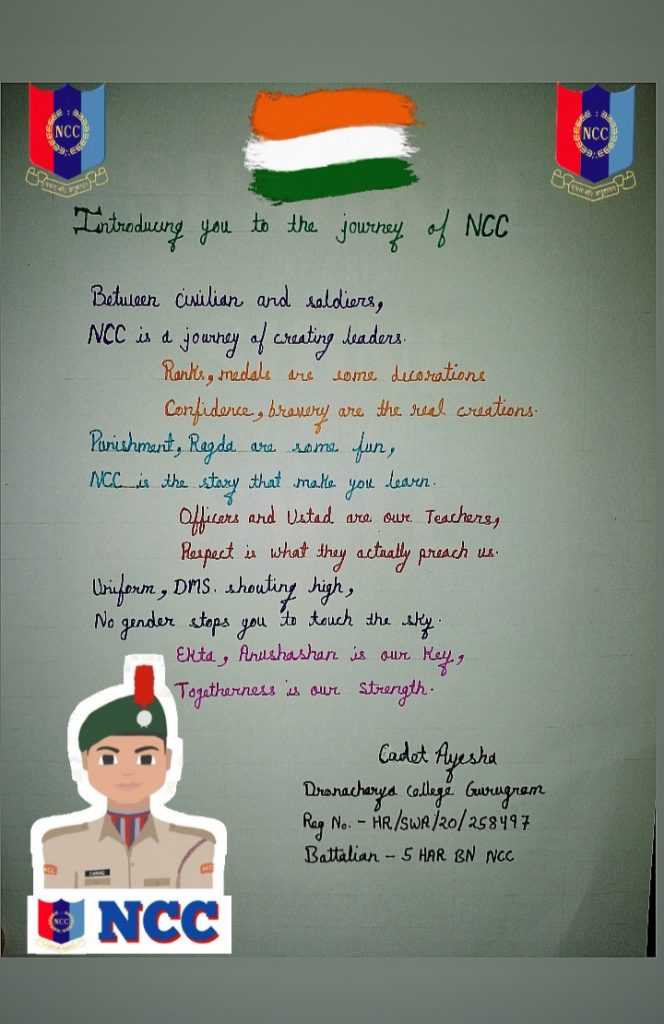 NCC
NCC
Introducing you to the journey of NCC
Between civilian and soldiers,
NCC is a journey of creating leaders.
Ranks, medals are some decorations
Confidence, bravery are the real creations.
Punishment, Ragda are some fun,
NCC is the story that make you learn.
Officers and Ustad are our Teachers,
Respect is what they actually preach us.
Uniform, DMS. shouting high,
No gender stops you to touch the sky.
Ekta, Anushashan is our Key,
Togetherness is our Strength.
Cadet Ayesha
Dronacharya College Gurugram
Reg No. - HR/SWR/20/258497
Battalian - 5 HAR BN NCC
NCC
NCC
NCC
NCC